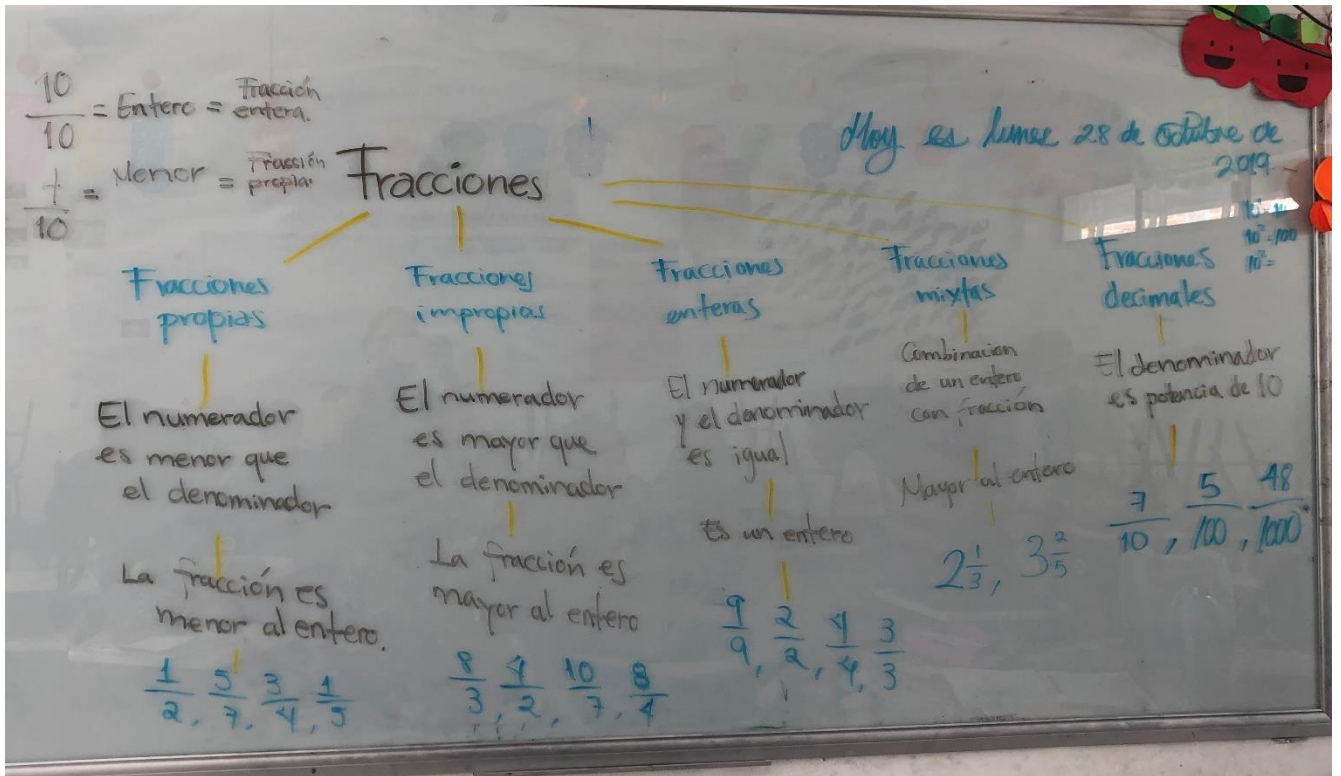 10/10 = Entero = Fracción entera.
1/10 = Menor = Fracción propia
Hoy es lunes 28 de octubre de
2019.
10² = 100
Fracciones
Fracciones
propias
El numerador
es menor que
el denominador
La fracción es
menor al entero.
1/2, 5/7, 3/4, 1/5
Fracciones
impropias
El numerador
es mayor que
el denominador
La fracción es
mayor al entero
8/3, 4/2, 10/7, 8/4
Fracciones
enteras
El numerador
y el denominador
es igual
Es un entero
9/9, 2/2, 4/4, 3/3
Fracciones
mixtas
Combinacion
de un entero
con fracción
Mayor al entero
2 1/3, 3 2/5
Fracciones
decimales
El denominador
es potencia de 10
7/10, 5/100, 48/1000